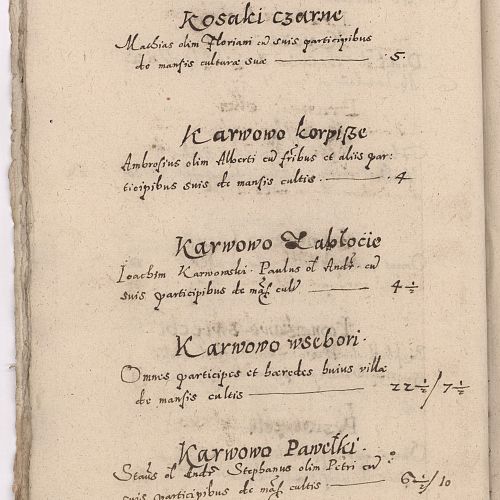 Kosaki czarne
Mathias olim Floriani cũ suis participibus
de mansis culturæ suæ 5.
Karwowo korpisze
Ambrosius olim Alberti cũ fr̃ibus et aliis par:
ticipibus suis de mansis cultis 4
Karwowo Zabłocie
Ioachim Karwowski. Paulus ol̃ Andr̃. cũ
suis participibus de mañs cult̃ 4 ½
Karwowo wsebori.
Omnes participes et hæredes huius villæ
de mansis cultis 22 ½/7 ½
Karwowo Pawełki.
Stañs ol̃ Andr̃ Stephanus olim Petri cũ
suis participibus de mañs cultis 6 ½/10